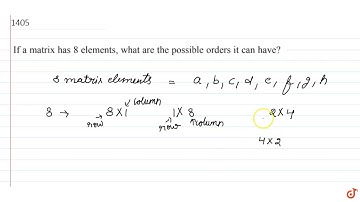 1405
If a matrix has 8 elements, what are the possible orders it can have?
8 matrix elements = a, b, c, d, e, f, g, h
column
8 → 8 X 1 1 X 8 2 X 4
row row column
4 X 2